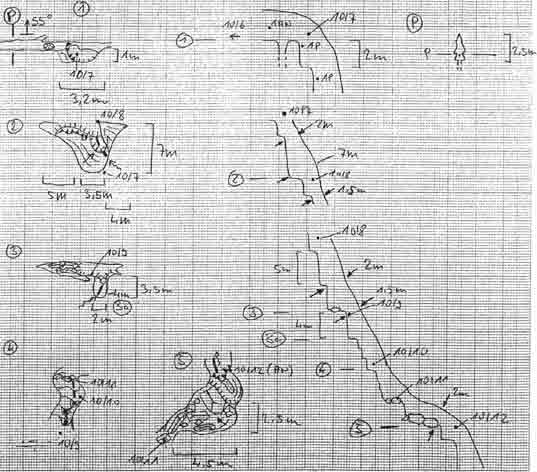 P 55°
1
1m
10/7
3,2m
10/6
1
1AN
10/7
1P
1P
2m
P
P
2,5m
2
10/8
7m
10/7
5m
3,5m
4m
10/7
2m
7m
10/8
1,5m
2
3
10/9
4m
3,5m
2m
3a
10/8
5m
2m
3
1,5m
10/9
4m
3a
4
10/10
10/11
2m
10/12
5
4
10/11
10/10
10/9
5
10/12 (AN)
2,5m
4,5m
10/11